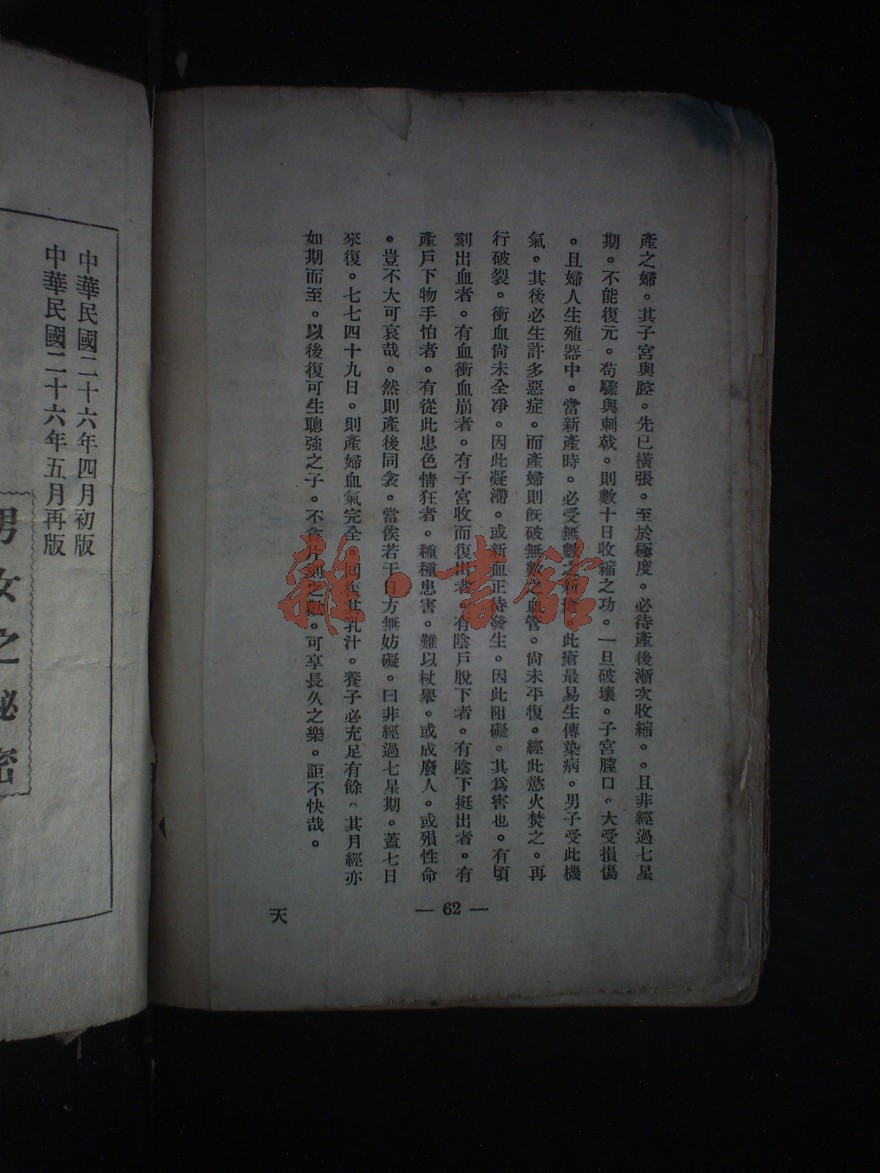 產之婦。其子宮與膣。先已橫張。至於極度。必待產後漸次收縮。。且非經過七星
期。不能復元。苟驟與刺戟。則數十日收縮之功。一旦破壞。子宮膣口。大受損傷
。且婦人生殖器中。當新產時。必受無數之新瘡。此瘡最易生傳染病。男子受此機
氣。其後必生許多惡症。而產婦則旣破無數之血管。尙未平復。經此慾火焚之。再
行破裂。衝血尙未全凈。因此凝滯。或新血正待發生。因此阻礙。其爲害也。有頃
刻出血者。有血衝血崩者。有子宮收而復出者。有陰戶脫下者。有陰下挺出者。有
產戶下物手怕者。有從此患色情狂者。種種患害。難以杖舉。或成廢人。或殞性命
。豈不大可哀哉。然則產後同衾。當俟若干日方無妨礙。曰非經過七星期。蓋七日
來復。七七四十九日。則產婦血氣完全 其乳汁。養子必充足有餘。其月經亦
如期而至。以後復可生聰強之子。不貪片刻之歡。可享長久之樂。詎不快哉。
— 62 —
天
中華民國二十六年四月初版
中華民國二十六年五月再版
男女之祕密
雜·書館